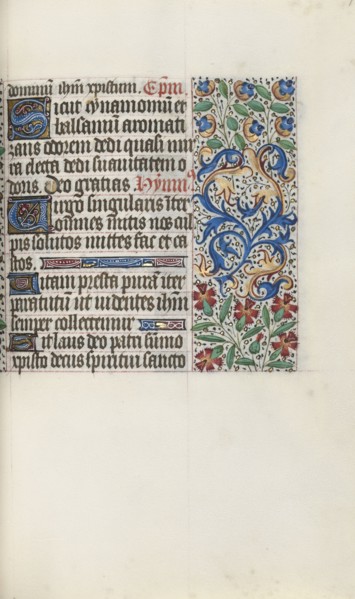 dominum ihm xpistum. Epm.
Sicut cynamomum et
balsamum aromati
zans odorem dedi quasi mir
ra electa dedi suavitatem o
doris. Deo gratias Hymnus
Virgo singularis inter
omnes mitis nos cul
pis solutos mittes fac et ca
stos
Vitam presta puram iter
para tutum ut videntes ihm
semper collectemur
Sit laus deo patri sumo
xpisto decus spiritui sancto